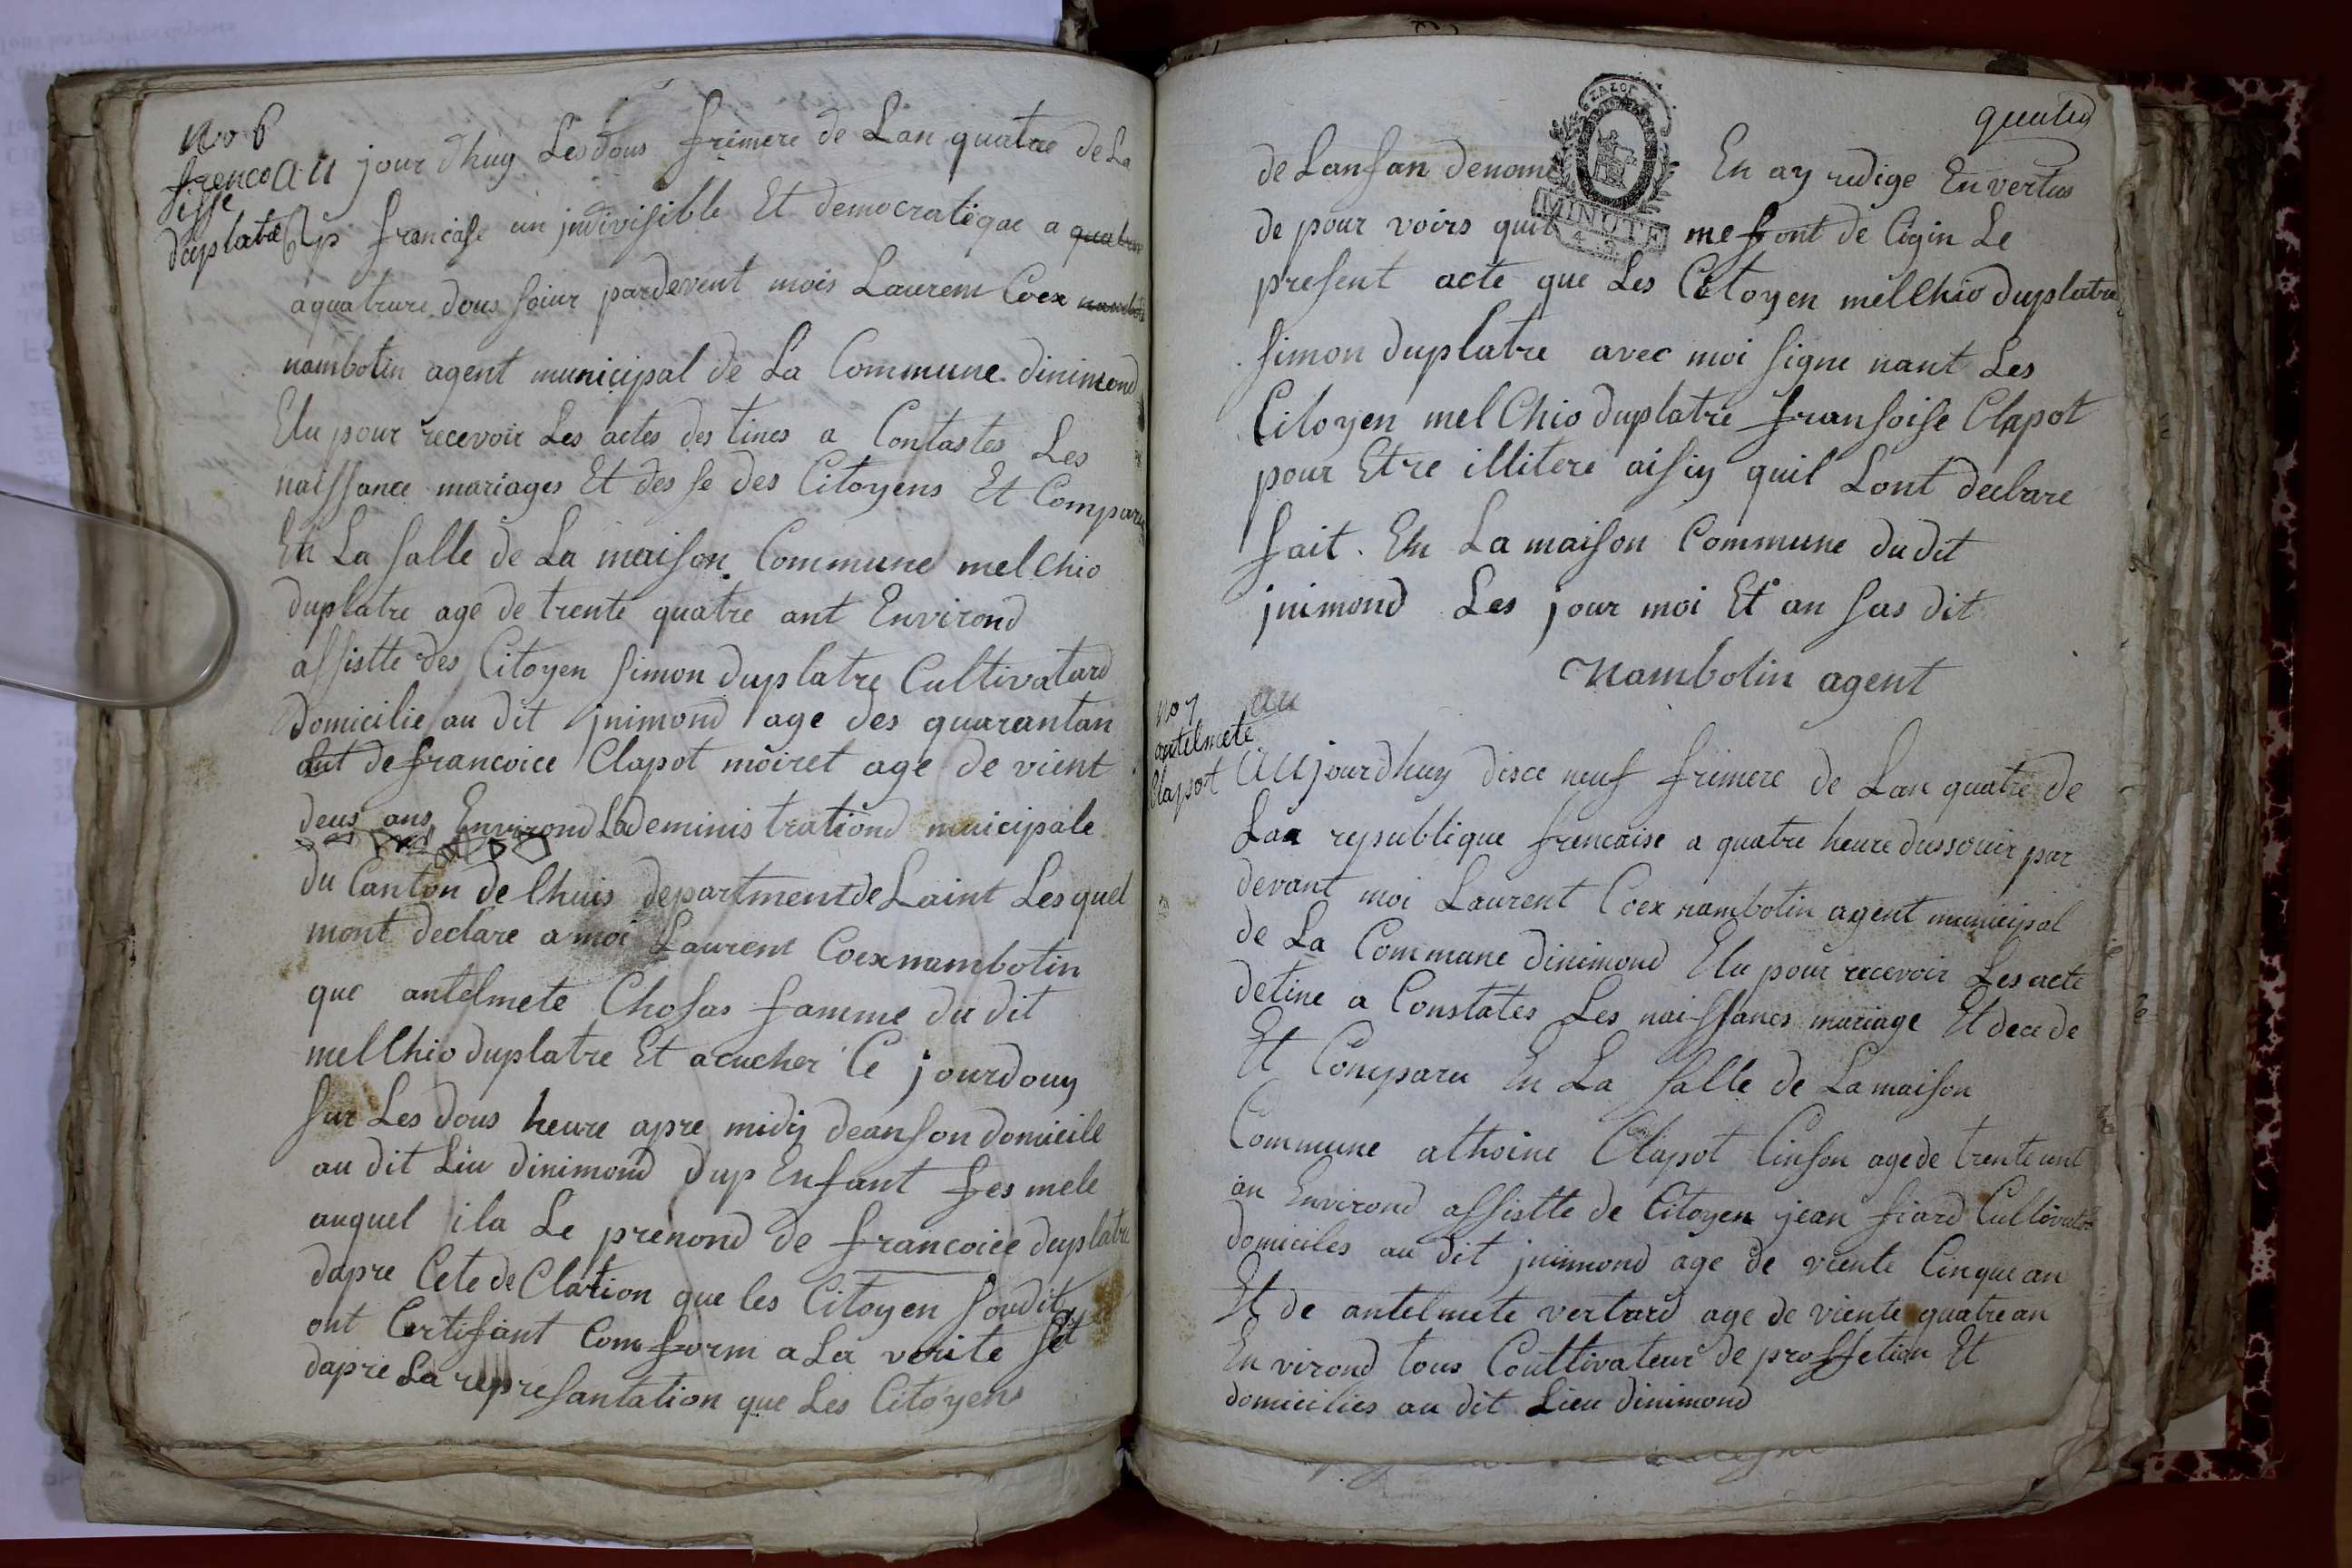 No 6
frenco
isse
duplatre
au jour dhuy Les dous frimere de Lan quatre de La
Rp francase un jndivisible Et democratique a quatrure
aquatrure dous soiur pardevent mois Laurent Coex namboti
nambotin agent municipal de La Commune dinimond
Elu pour recevoir Les actes des tines a Contastes Les
naissance mariages Et des se des Citoyens Et Comparu
En La salle de La maison Commune mel Chio
duplatre age de trente quatre ant Environd
assistte des Citoyen simon duplatre Cultivatard
domicilie au dit jnimond age des quarantan
ant de francoice Clapot moiret age de vient
deus ans Environd Lademinis trationd municipale
du Canton de lhuis departmentde Laint Les quel
mont declare a moi Laurent Coex nambotin
que antelmete Chosas famme du dit
melChio duplatre Et acucher Ce jourdouy
sur Les dous heure apre midy deanson domicile
au dit Liu dinimond dup Enfant fes mele
auquel ila Le prenond de francoice duplatre
dapre Cete de Clation que les Citoyen soudit
ont Certifiant Com form a La verite set
dapre La represantation que Les Citoyens
quatre
de Lansan denome En ay redige En vertus
MINUTE
de pour voirs quil me sont de Cigin Le
present acte que Les Citoyen melChio duplatre
simon duplatre avec moi signe nant Les
Citoyen mel Chio duplatre fransoise Clapot
pour Etre illitere aissiy quil Lont declare
fait. En La maison Commune du dit
jnimond Les jour moi Et an sas dit
Nambotin agent
no 7
antelmete
Clapot
au
aujourdhuy disce neuf frimere de Lan quatre de
Laa republique frencaise a quatre heure dussouir par
devant moi Laurent Coex nambotin agent municipal
de La Commune dinimond Elu pour recevoir Les acte
detine a Constates Les naissances mariage Et dece de
Et Comparu En La salle de La maison
Commune athoine Clapot Cinson age de trente unt
an Environd assistte de Citoyen jean fiard Cultivater
domiciles au dit jnimond age de viente Cinque an
Et de antelmete vertard age de viente quatre an
En virond tous Coultivateur de proffetion Et
domicilies au dit Lieu dinimond